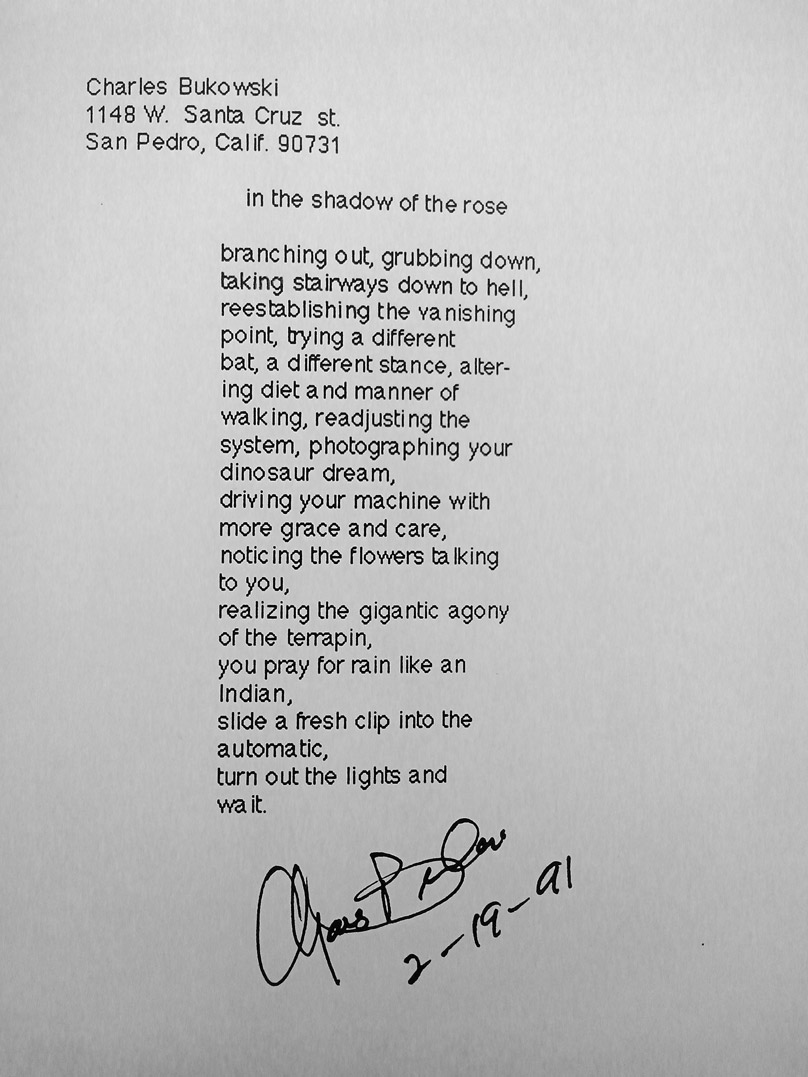 Charles Bukowski
1148 W. Santa Cruz st.
San Pedro, Calif. 90731
in the shadow of the rose
branching out, grubbing down,
taking stairways down to hell,
reestablishing the vanishing
point, trying a different
bat, a different stance, alter-
ing diet and manner of
walking, readjusting the
system, photographing your
dinosaur dream,
driving your machine with
more grace and care,
noticing the flowers talking
to you,
realizing the gigantic agony
of the terrapin,
you pray for rain like an
Indian,
slide a fresh clip into the
automatic,
turn out the lights and
wait.
2-19-91